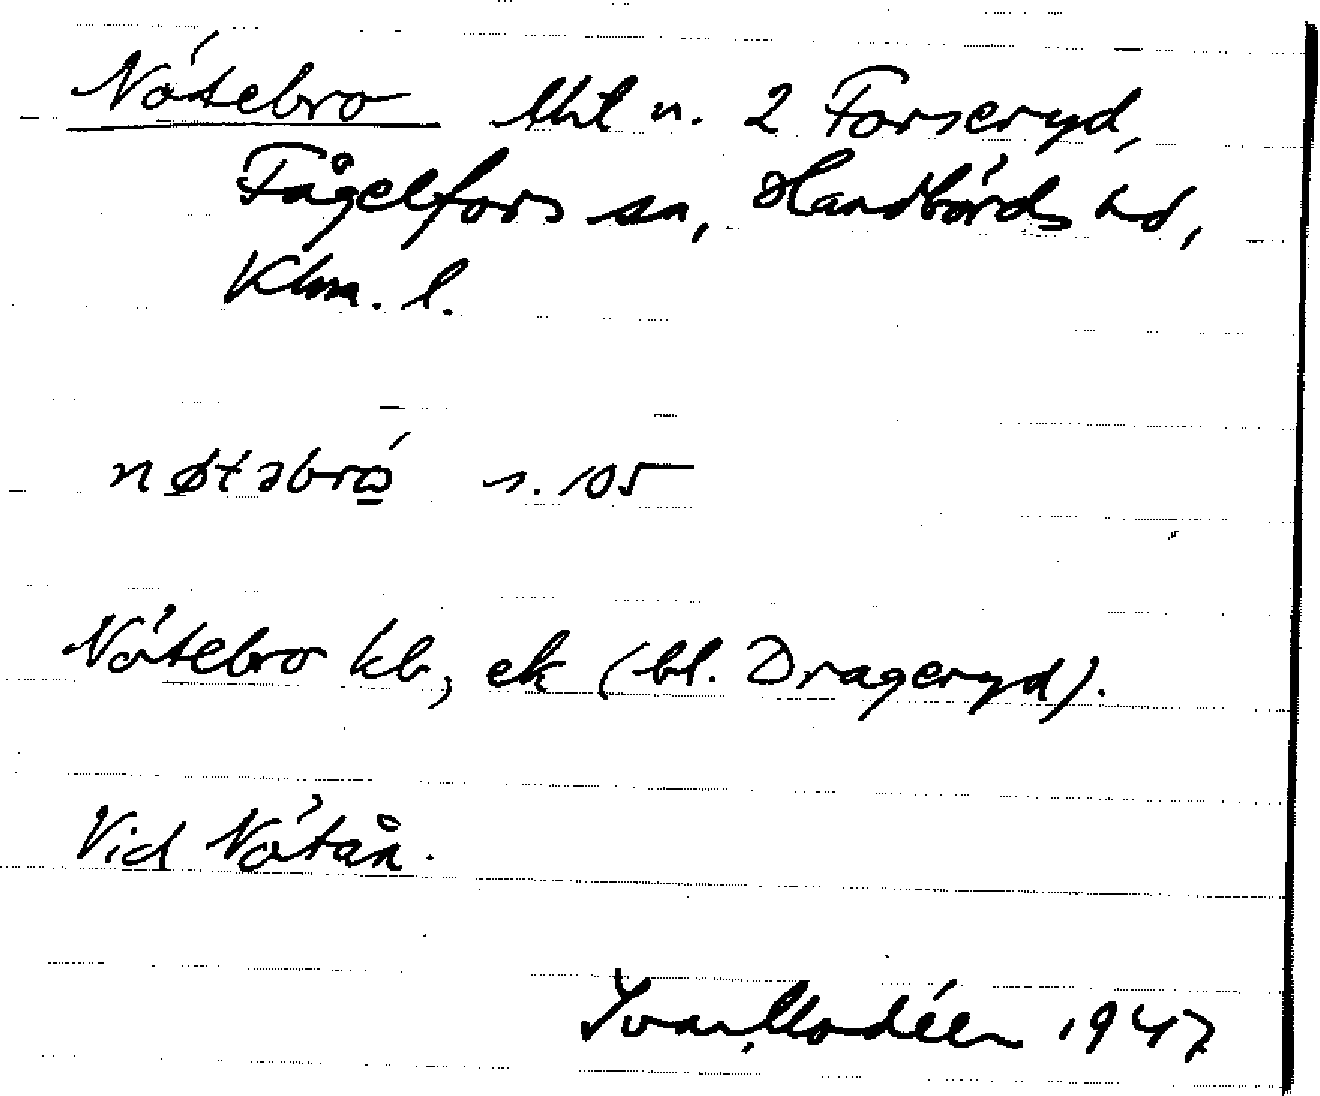 Nötebro Uht n. 2 Forseryd,
Fågelfors sn, Handbörds hd,
Klm. l.
nøtəbrò s. 105
Nötebro kb, ek (bl. Drageryd).
Vid Nötån.
Ivar Modéer 1947